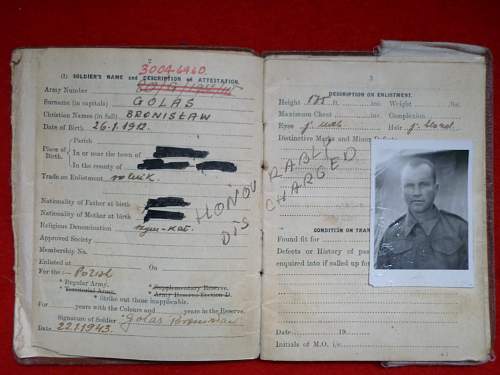 2
(1) SOLDIER'S NAME and DESCRIPTION on ATTESTATION.
3004-6460.
Army Number
Surname (in capitals) GOLAS
Christian Names (in full) BRONISŁAW
Date of Birth. 26.1.1912.
Place of Birth.
Parish
In or near the town of
In the county of
Trade on Enlistment rolnik
Nationality of Father at birth
Nationality of Mother at birth
Religious Denomination rzym-kat.
Approved Society
Membership No.
Enlisted at On
For the :- Polish
* Regular Army. * Supplementary Reserve.
* Territorial Army. * Army Reserve Section D.
* Strike out those inapplicable.
For years with the Colours and years in the Reserve.
Signature of Soldier Golas Bronisław
Date 22.1.1943.
HONOURABLY
DISCHARGED
3
DESCRIPTION ON ENLISTMENT.
Height 175 ft. ins. Weight lbs.
Maximum Chest ins. Complexion
Eyes Hair j. blond.
Distinctive Marks and Minor
CONDITION ON TRAN
Found fit for
Defects or History of pas
enquired into if called up for
Date 19
Initials of M.O. i/c